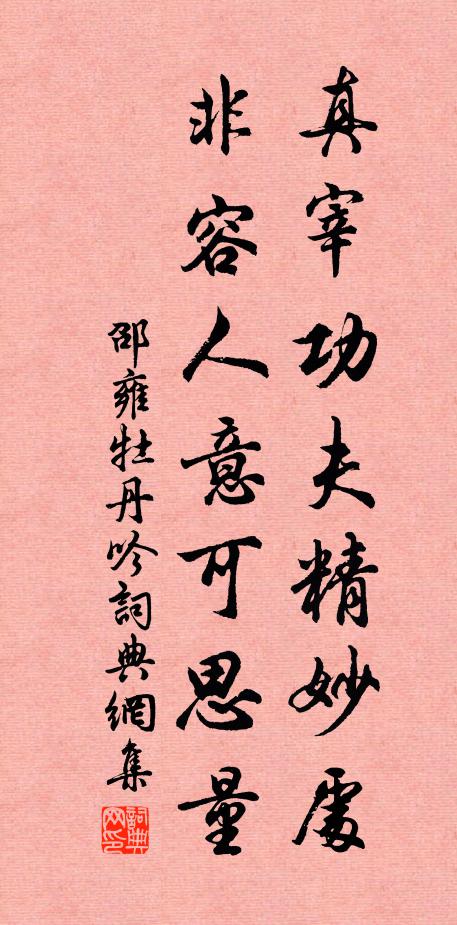 真宰功夫精妙處
非容人意可思量
邵雍牡丹吟詞典網集
詞典網印